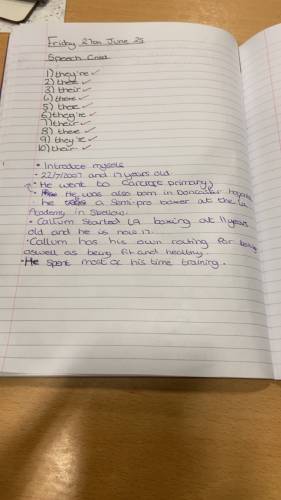 Friday 27th June 25
Speech Cred
1) they're
2) there
3) their
4) there
5) there
6) they're
7) their
8) there
9) they're
10) their
• Introduce myself
• 22/7/2007 and 17 years old
• He went to primary
• He was also born in Doncaster
he a Semi-pro boxer at the
Academy in
• Callum Started boxing at 11 years
old and he is now 17.
• Callum has his own routing for being
aswell as being fit and healthy
• He spent most of his time training.